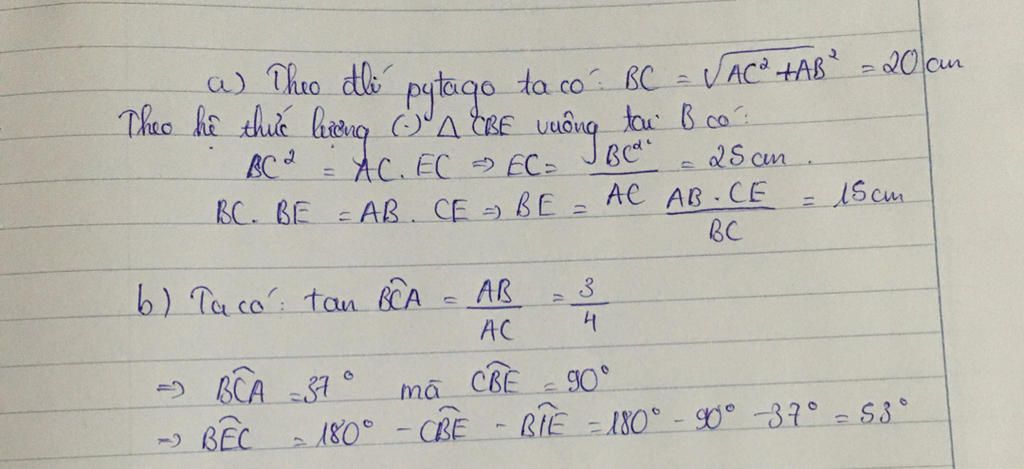 a) Theo đlí pytago ta có: BC = √AC² + AB² = 20 cm
Theo hệ thức lượng (·) Δ CBE vuông tại B có:
BC² = AC . EC ⇒ EC = BC² / AC = 25 cm .
BC . BE = AB . CE ⇒ BE = AB . CE / BC = 15 cm
b) Ta có: tan BCA = AB / AC = 3 / 4
⇒ BCA = 37° mà CBE = 90°
⇒ BEC = 180° - CBE - BIE = 180° - 90° - 37° = 53°